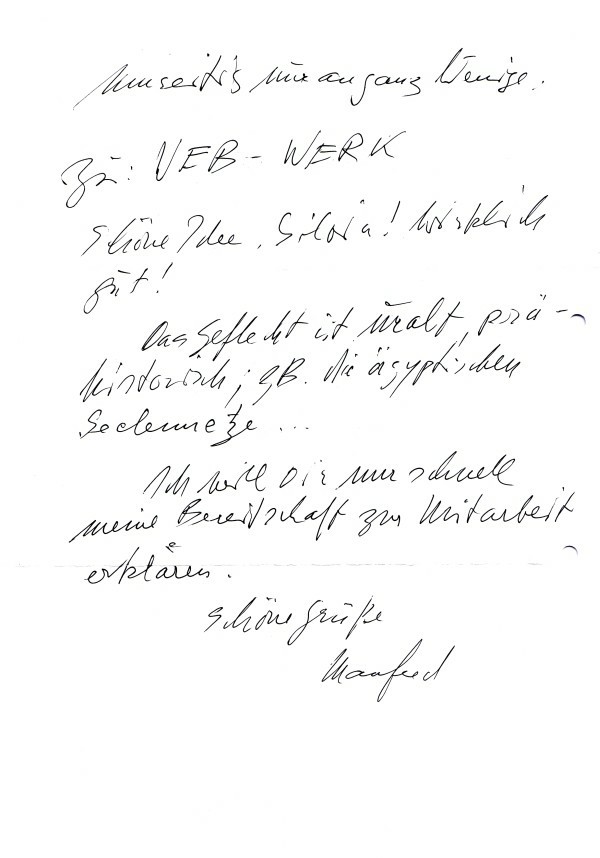 nur an ganz Wenige.
Zu: VEB - WERK
Schöne Idee, Silvia! Wirklich
gut!
Das Geflecht ist uralt, prä-
historisch; z.B. die ägyptischen
Seelennetze ...
Ich will Dir nur schnell
meine Bereitschaft zur Mitarbeit
erklären.
Schöne Grüße
Manfred